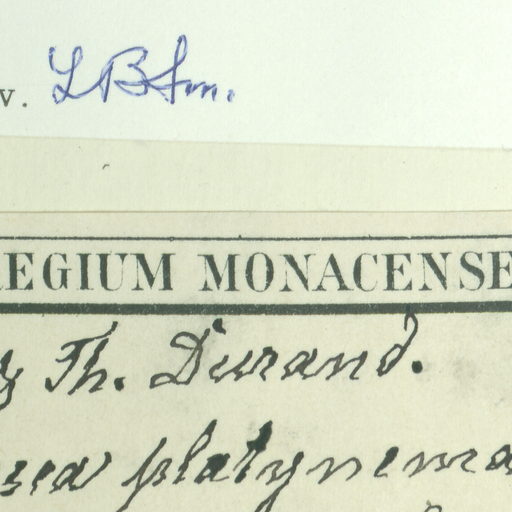 v. LBSm.
EGIUM MONACENSE
& Th. Durand.
sea platynema